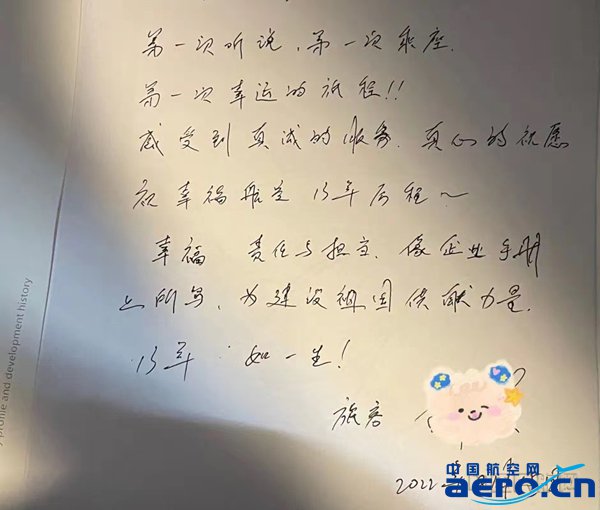 第一次听说,第一次乘座.
第一次幸运的旅程!!
感受到真诚的服务.真心的祝愿
祝幸福航空 13年历程~
幸福 责任与担当.像企业手册
上所写,为建设祖国供献力量.
13年 如一生!
旅客
2022年
中国航空网
aero.cn
y profile and development history